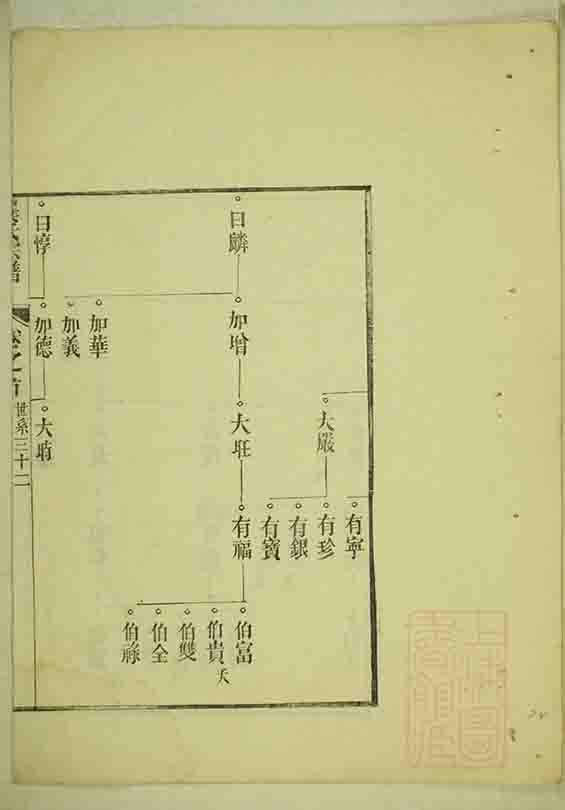 有寧
大嚴
有珍
有銀
有寶
曰麟
加增
大旺
有福
伯富
伯貴
夭
伯雙
伯全
伯祿
加華
加義
曰惇
加德
世系三十二